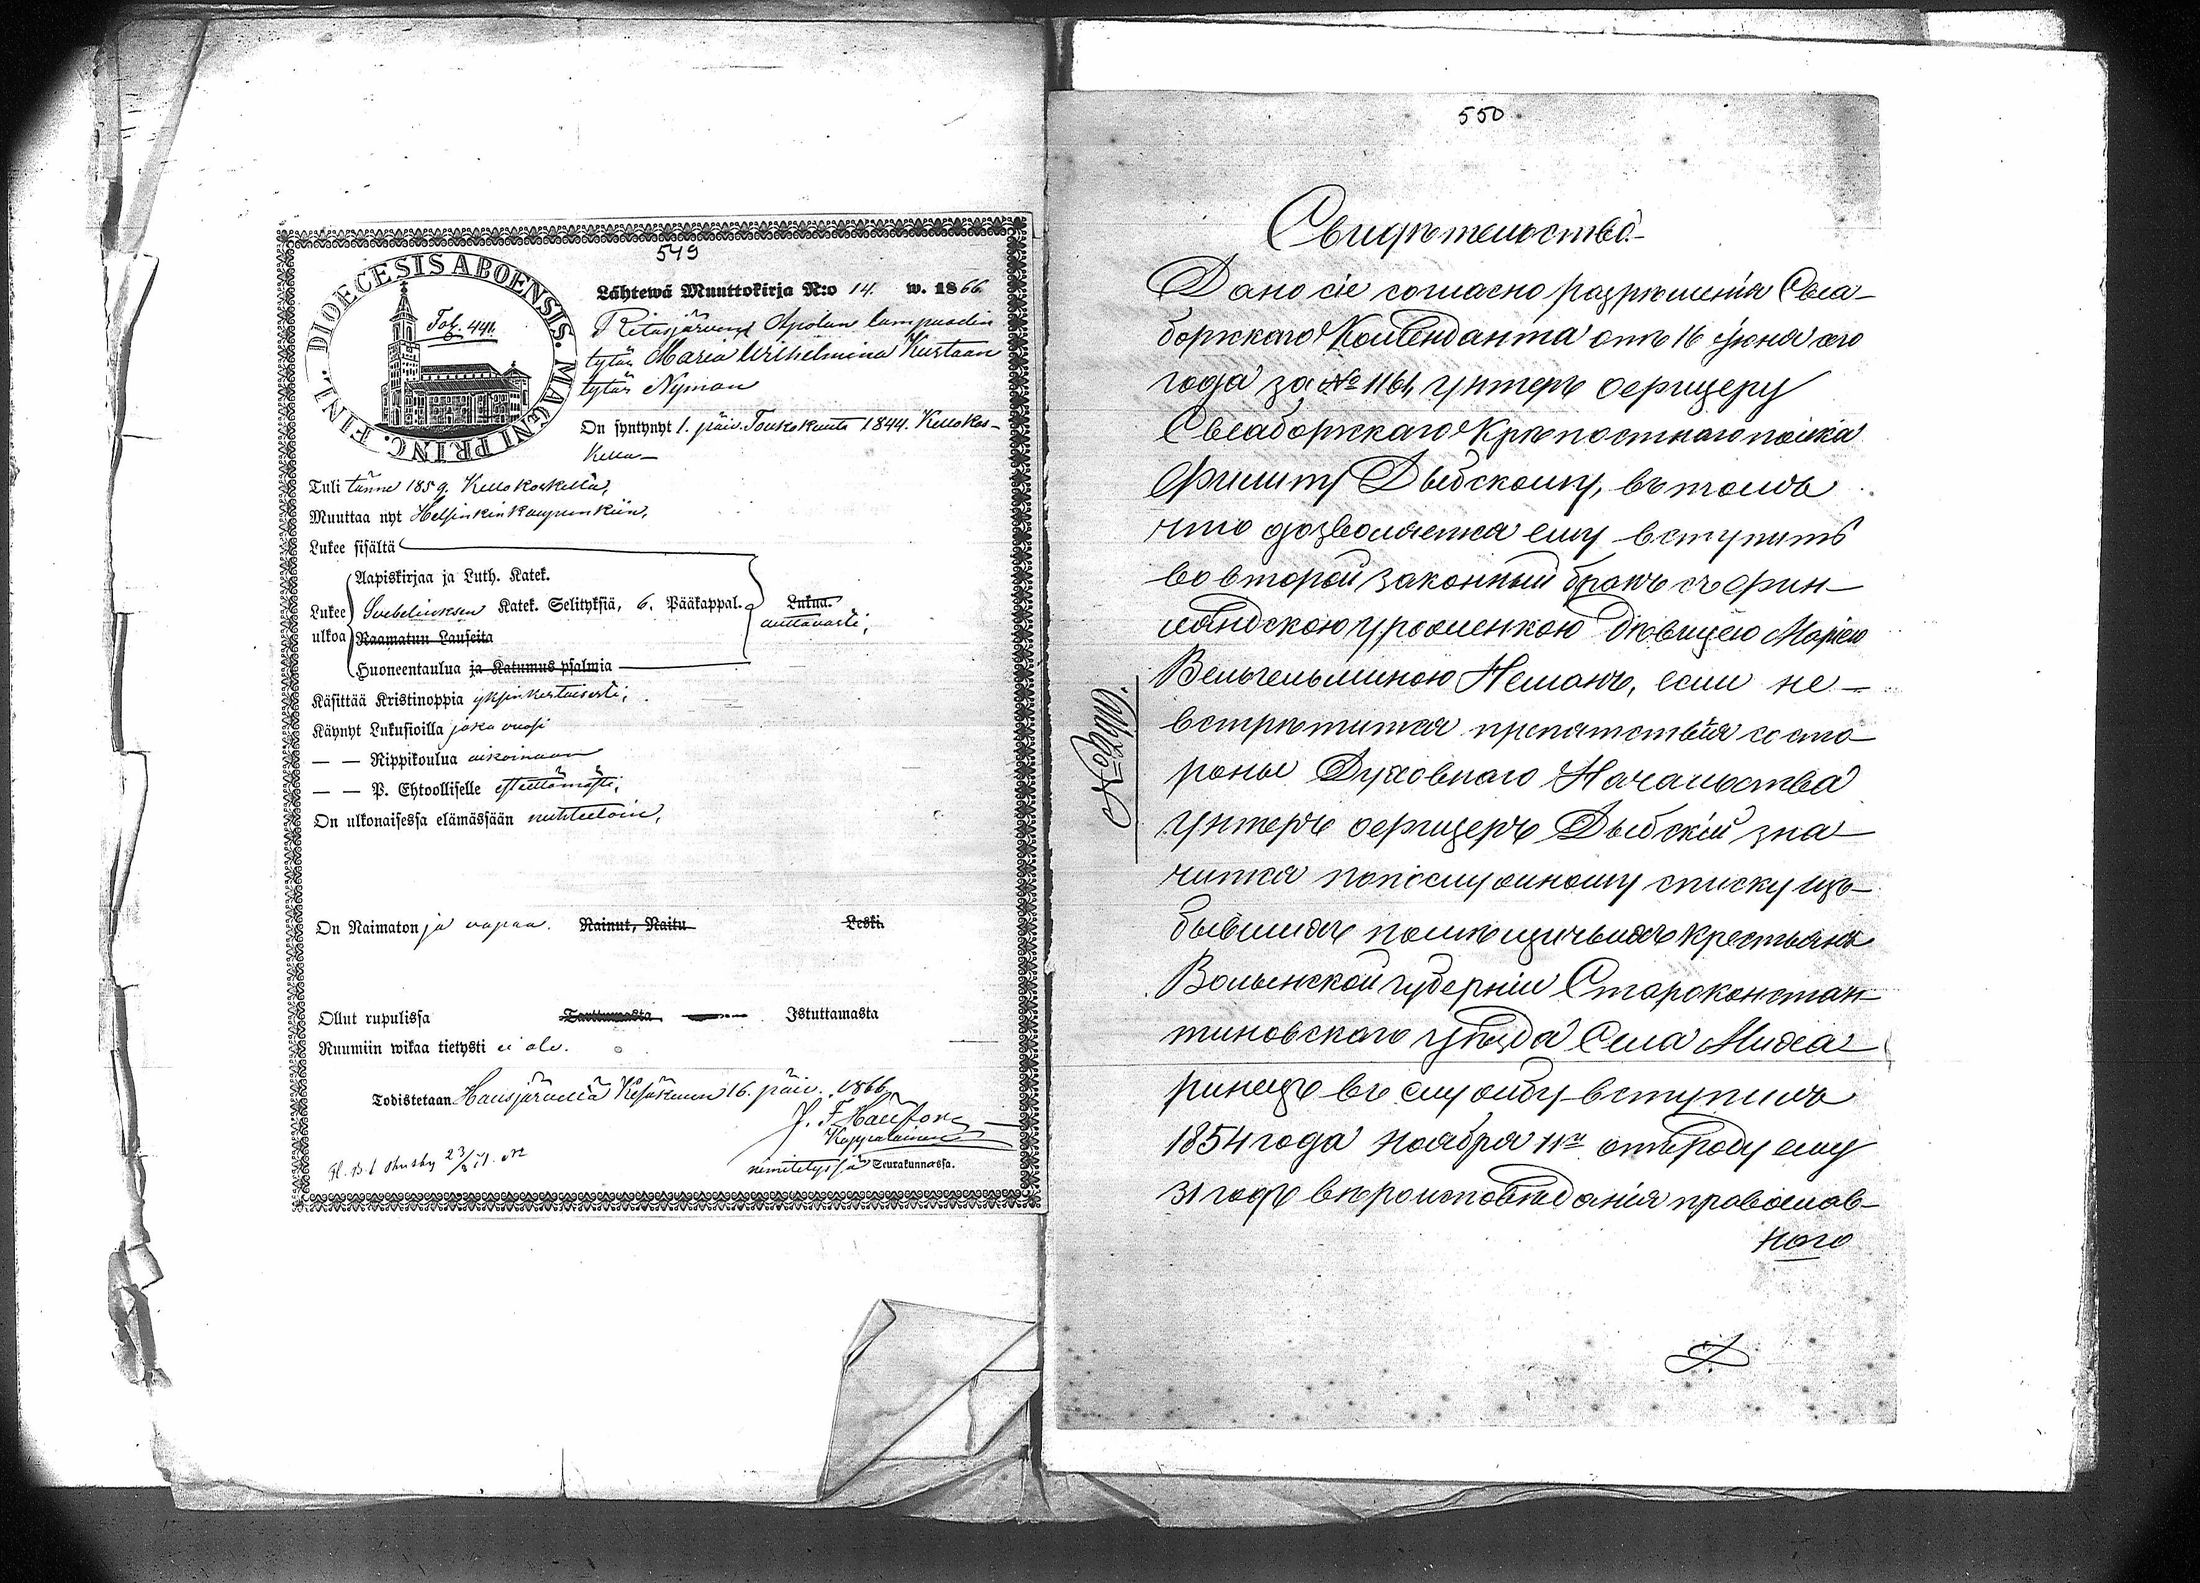 549
DIOECESIS ABOENSIS. MAGNI PRINC. FINL.
Fol. 441.
Lähtewä Muuttokirja N:o 14. w. 1866
Ritasjärven Apolan lampuodin
tytär Maria Wilhelmina Kustaan
tytär Nyman
On syntynyt 1. päiv. Toukokuuta 1844. Kellokos-
kella
Tuli tänne 1859. Kellokoskella,
Muuttaa nyt Helsinkin kaupunkiin,
Lukee sisältä
Aapiskirjaa ja Luth. Katek.
Lukee ulkoa Svebeliuksen Katek. Selityksiä, 6. Pääkappal. Lukua.
auttavasti;
Raamatun Lauseita
Huoneentaulua ja Katumus psalmia
Käsittää Kristinoppia yksinkertaisesti;
Käynyt Lukusioilla joka vuosi
— — Rippikoulua aikoinaan
— — P. Ehtoolliselle esteettömästi;
On ulkonaisessa elämässään nuhteetoin,
On Naimaton ja vapaa. Nainut, Naitu Leski.
Ollut rupulissa Tarttumasta Istuttamasta
Ruumiin wikaa tietysti ei ole.
Todistetaan Hausjärvellä Kesäkuun 16. päiv. 1866.
Kappalainen
nimitetyssä Seurakunnassa.
550
Свидѣтельство.
Дано сіе согласно разрѣшенія Свеа-
боржскаго Коменданта отъ 16 Іюня сего
года за № 1161, унтеръ офицеру
Свеаборжскаго Крѣпостнаго полка
Филипу Дыбскому, въ томъ
что дозволяется ему вступить
во второй законный бракъ съ фин-
ляндскою уроженкою Дѣвицею Маріею
Вельгельминою Неманъ, если не-
встрѣтится препятствія со сто-
роны Духовнаго Начальства
унтеръ офицеръ Дыбскій зна-
чится по послужному списку изъ
бывшихъ помѣщичьихъ крестьянъ
Волынской губерніи Староконстан-
тиновскаго уѣзда Села Миха-
ринецъ въ службу вступилъ
1854 года ноября 11го отъ роду ему
31 годъ вѣроисповѣданія православ-
наго